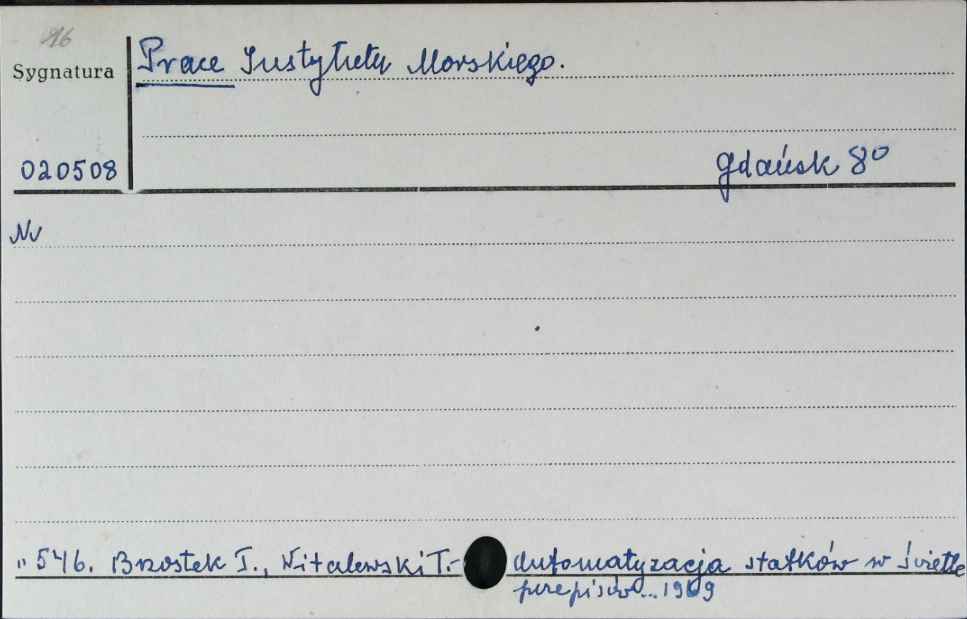 16
Sygnatura Prace Instytutu Morskiego.
020508 Gdańsk 8°
Nr
" 546. Brzostek T., Witalewski T.- Automatyzacja statków w świetle
przepisów... 1969